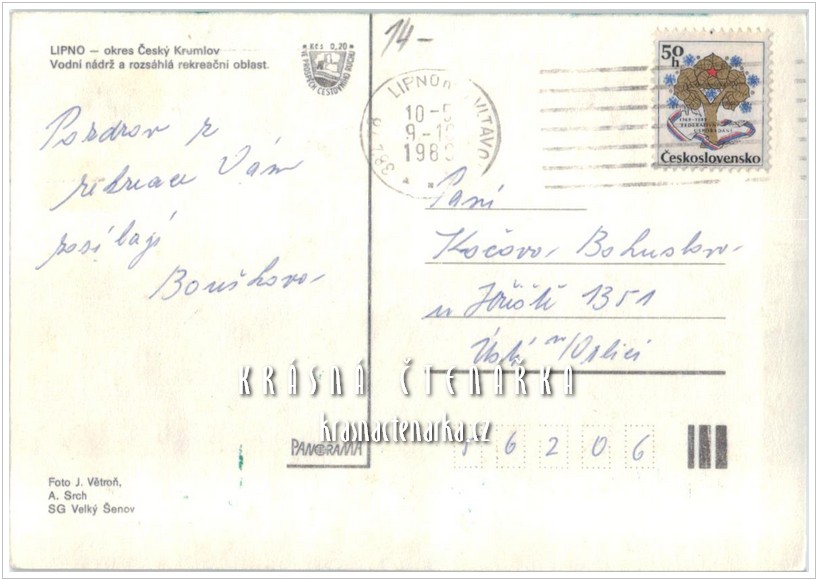 LIPNO — okres Český Krumlov
Vodní nádrž a rozsáhlá rekreační oblast
Kčs 0,20
VE PROSPĚCH CESTOVNÍHO RUCHU
14-
382 78 LIPNO n. VLTAVO
10-5
9-10
198
50 h
1969-1989
Československo
Pozdrav z
rekreace Vám
posílají
Bouškova
Paní
Kočová Bohuslava
u Hřiště 1351
Ústí n/Orlicí
KRÁSNÁ ČTENÁRKA
krasnactenarka.cz
PANORAMA
56206
Foto J. Větroň,
A. Srch
SG Velký Šenov